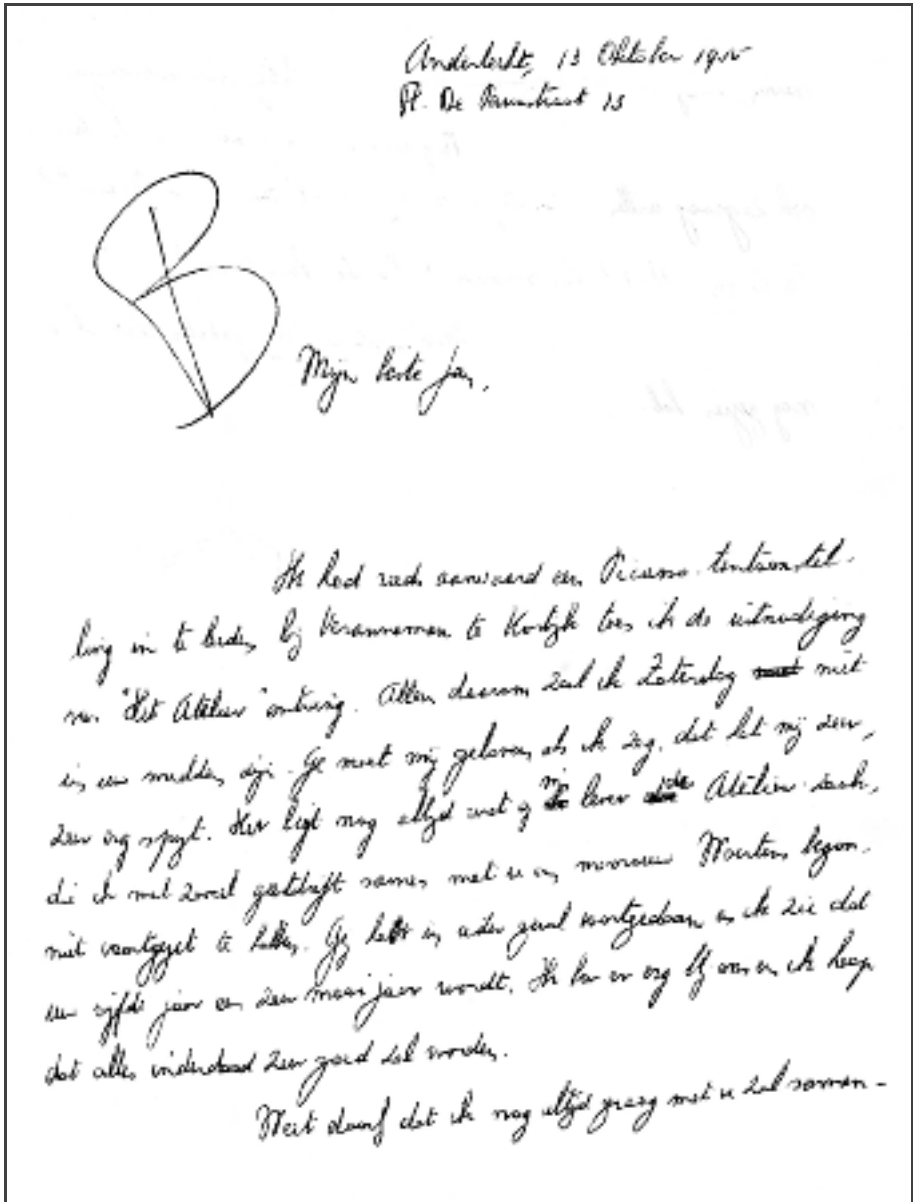 Anderlecht, 13 Oktober 19
De 13
B
Mijn beste Jan,
Ik had reeds aanvaard een Picasso-tentoonstel-
ling in te leiden bij Veranneman te Kortrijk toen ik de uitnodiging
van "Het Atelier" ontving. Alleen daarom zal ik Zaterdag niet
in uw midden zijn. Ge moet mij geloven als ik zeg, dat het mij zeer,
zeer erg spijt. Het ligt nog altijd wat op mijn lever de Atelier-zaak,
die ik met zoveel geestdrift samen met u en mevrouw Maertens begon,
niet voortgezet te hebben. Gij hebt in ieder geval voortgedaan en ik zie dat
uw vijfde jaar een zeer mooi jaar wordt. Ik ben er erg blij om en ik hoop
dat alles inderdaad zeer goed zal worden.
Weet dat ik nog altijd graag met u zal samen-